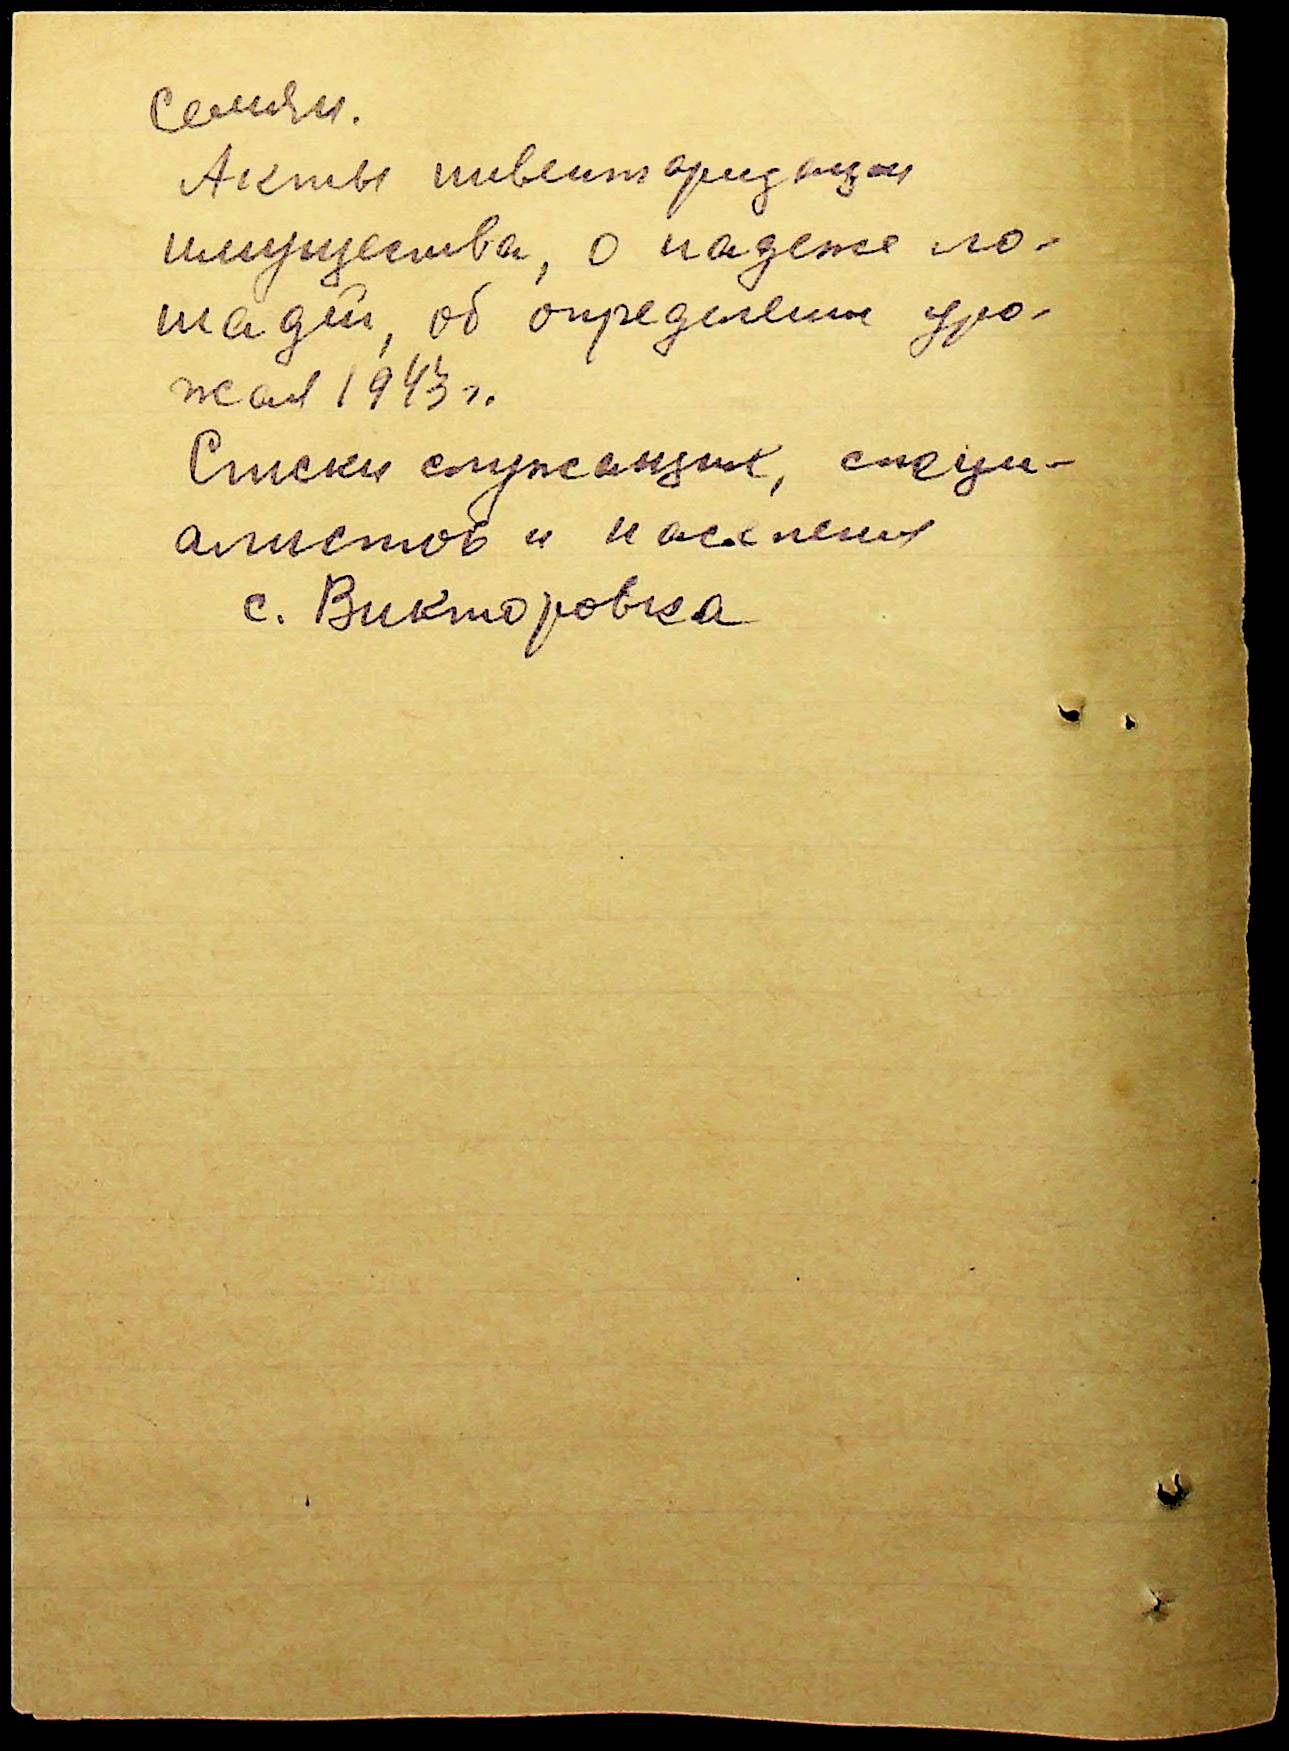 семян.
Акты инвентаризации
имущества, о падеже ло-
шадей, об определении уро-
жая 1943 г.
Списки служащих, специ-
алистов и населения
с. Викторовка